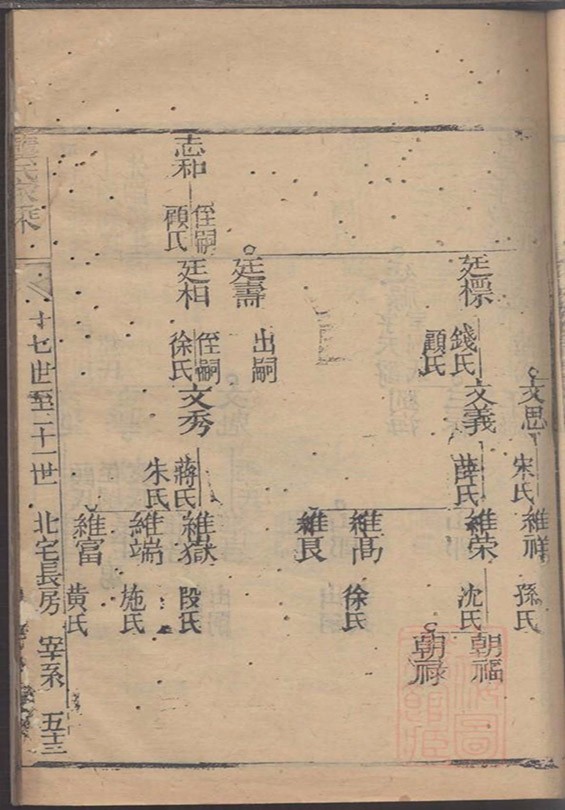 文思
宋氏
維祥
孫氏
廷標
錢氏
顧氏
文義
薛氏
維榮
沈氏
朝福
朝祿
維高
徐氏
維良
廷壽
出嗣
志和
侄嗣
顧氏
廷相
侄嗣
徐氏
文秀
蔣氏
朱氏
維獄
段氏
維端
施氏
維富
黃氏
氏家乘
十七世至二十一世 北宅長房 宰系 五十三